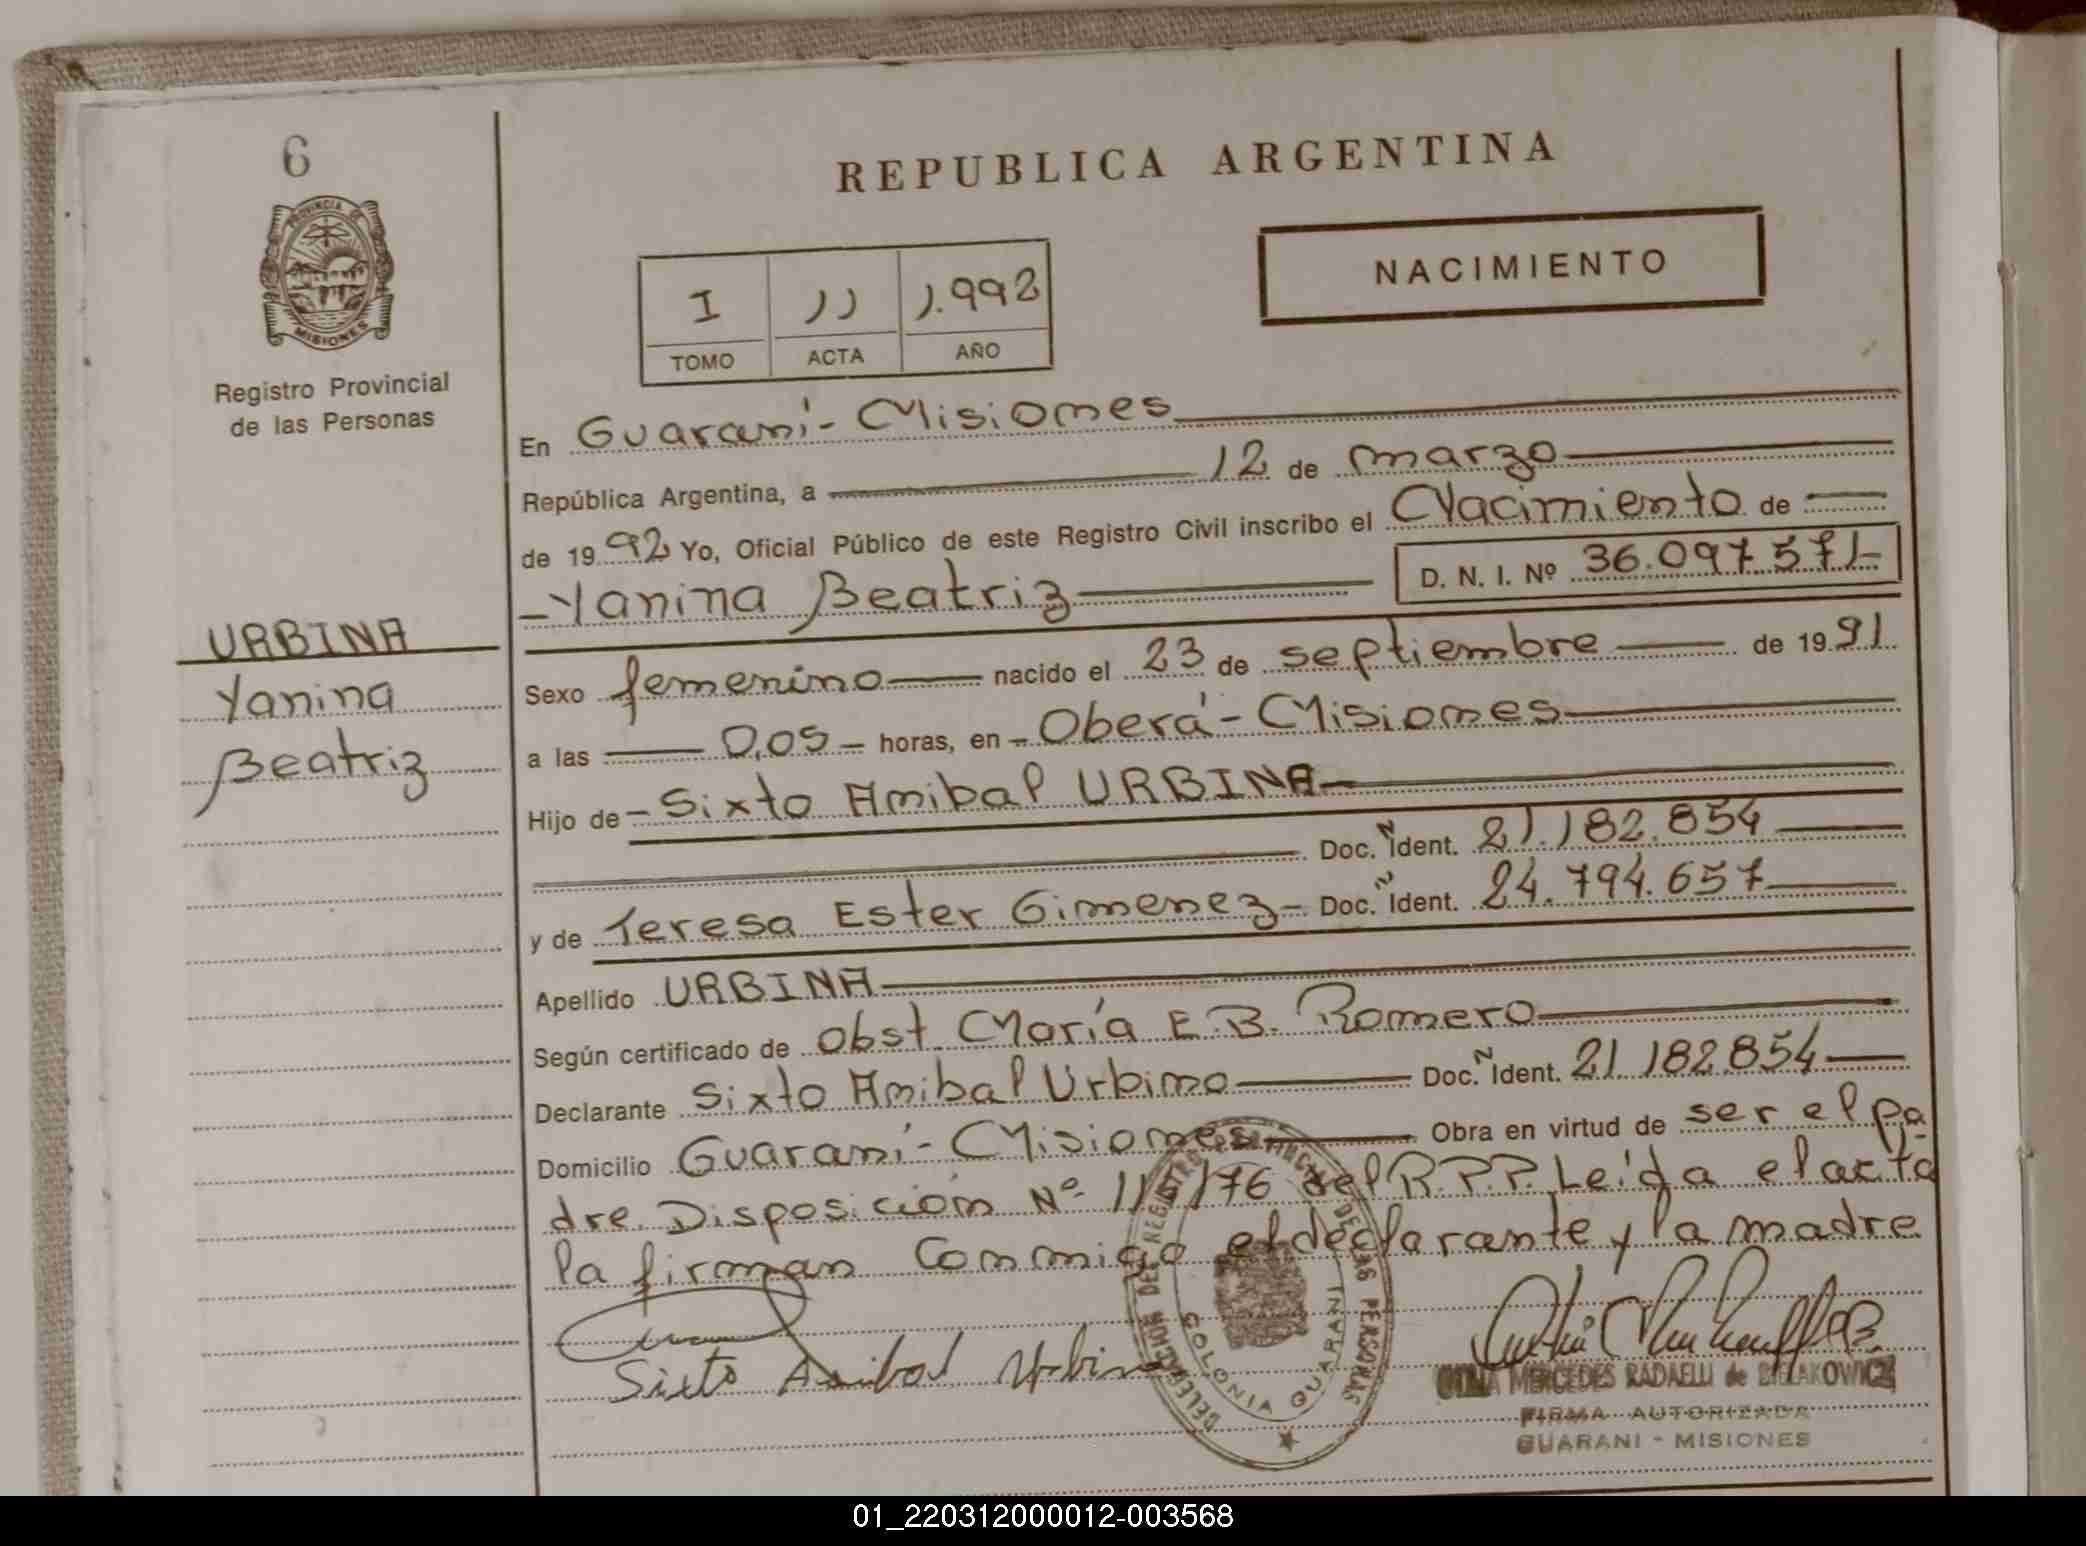 6
REPUBLICA ARGENTINA
PROVINCIA DE
MISIONES
NACIMIENTO
I 11 1.992
TOMO ACTA AÑO
Registro Provincial
de las Personas
En Guaraní - Misiones
República Argentina, a 12 de marzo
de 19 92 Yo, Oficial Público de este Registro Civil inscribo el Nacimiento de
- Yanina Beatriz D. N. I. Nº 36.097.571-
URBINA
Yanina
Beatriz
Sexo femenino nacido el 23 de septiembre de 19 91
a las 0,05 - horas, en - Oberá - Misiones
Hijo de - Sixto Anibal URBINA
Doc. Ñ Ident. 21.182.854
y de Teresa Ester Gimenez - Doc. Ñ Ident. 24.794.657
Apellido URBINA
Según certificado de Obst María E.B. Romero
Declarante Sixto Anibal Urbina Doc. Ñ Ident. 21.182.854
Domicilio Guaraní - Misiones Obra en virtud de ser el pa-
dre. Disposición Nº /76 del R.P.P. Leída el acta
la firman conmigo el declarante y la madre
Sixto Anibal Urbina
DELEGACION DEL REGISTRO PROVINCIAL DE LAS PERSONAS
COLONIA GUARANI
MERCEDES RADAELLI de BIELAKOWICZ
FIRMA AUTORIZADA
GUARANI - MISIONES
01_220312000012-003568